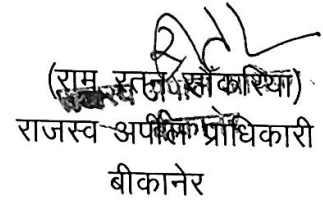 (राम रतन सौंकरिया)
राजस्व अपील प्राधिकारी
बीकानेर